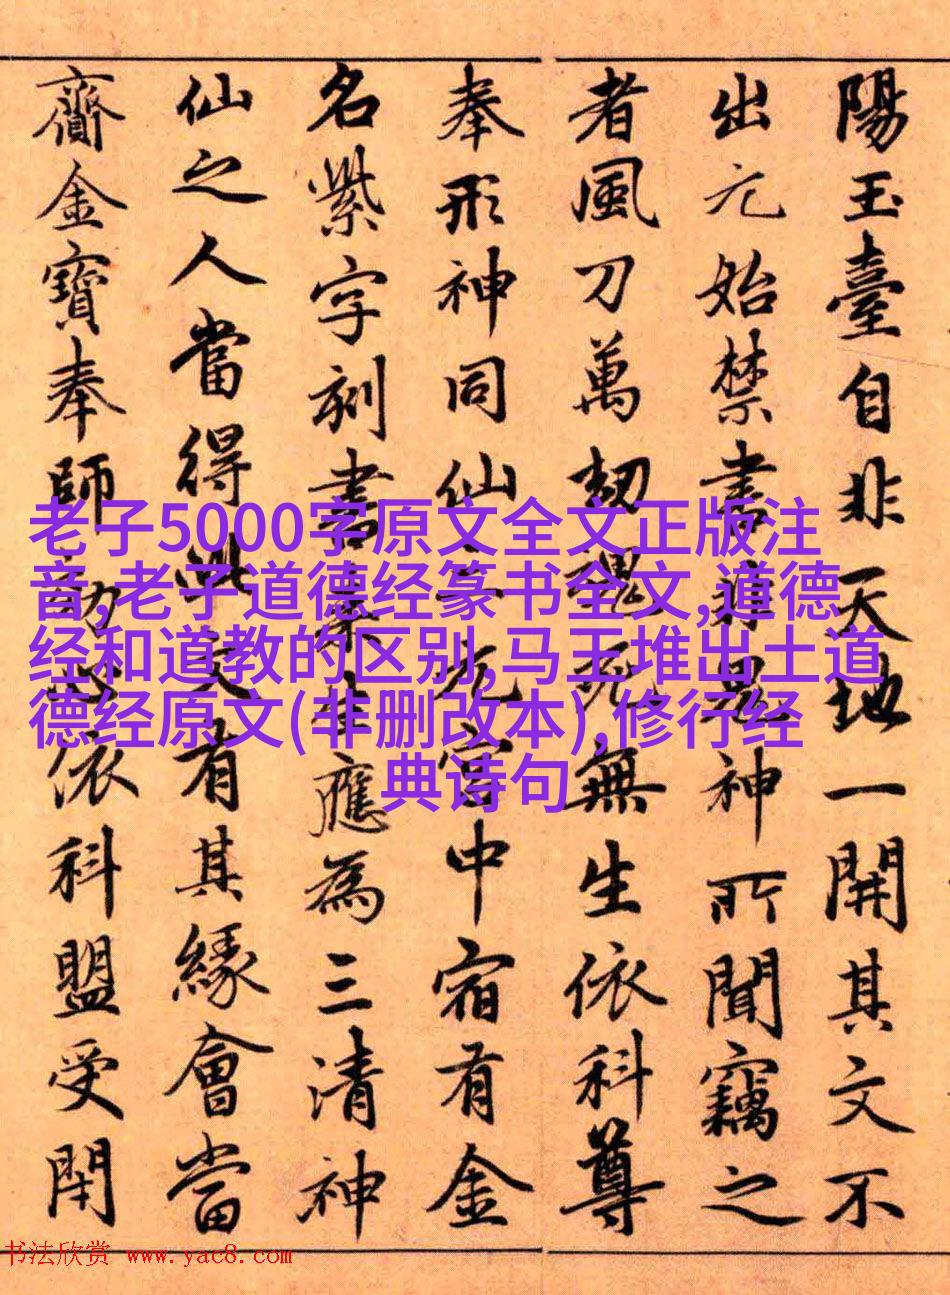 陽玉臺自非天地一開其文不
出元始禁書鬼神所聞竊之
者風刀萬劫魂死無生依科尊
奉形神同仙元宮中宿有金
名紫字刻書生應為三清神
仙之人當得此文有其緣會當
齎金寶奉師依科盟受閇
老子5000字原文全文正版注
音,老子道德经篆书全文,道德
经和道教的区别,马王堆出土道
德经原文(非删改本),修行经
典诗句
书法欣赏 www.yac8.com